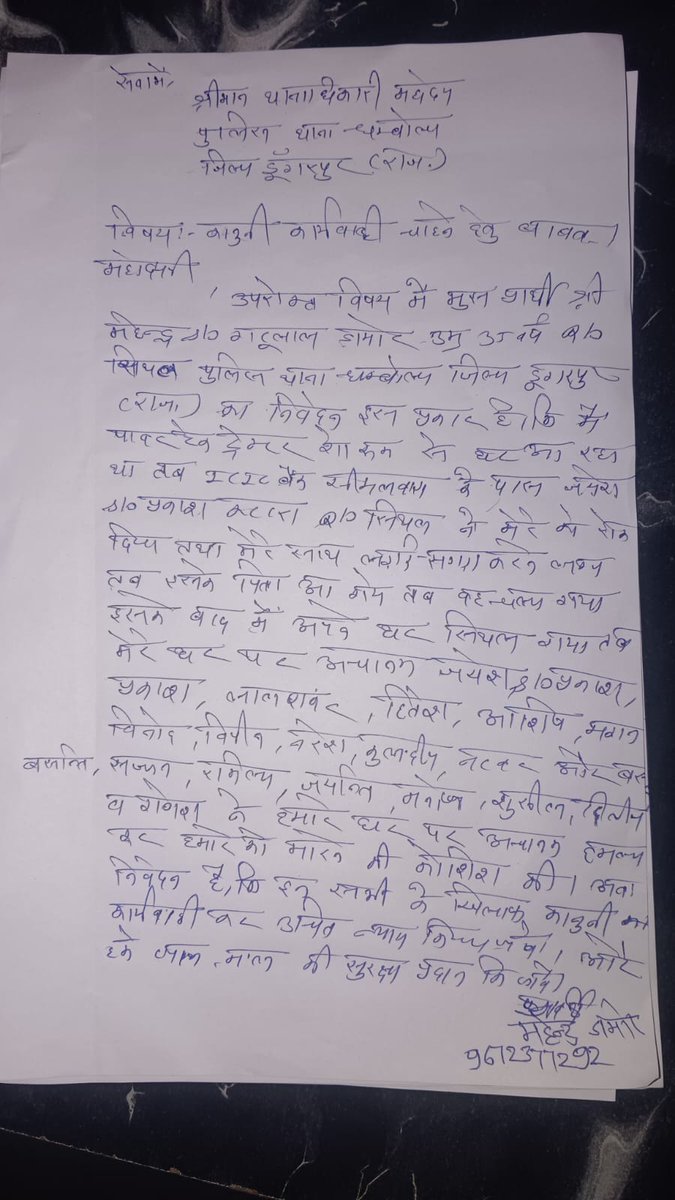 सेवामें,
श्रीमान थानाधिकारी महोदय
पुलिस थाना धम्बोला
जिला डूँगरपुर (राज.)
विषय:- कानुनी कार्यवाही चाहने हेतु बाबत।
महोदयजी
, उपरोक्त विषय में मुझ प्रार्थी श्री
महेन्द्र s/o गटूलाल डामोर उम्र 35 वर्ष R/o
सियल पुलिस थाना धम्बोला जिला डूंगरपुर
(राज.) का निवेदन इस प्रकार है, कि मैं
पावर ट्रेक ट्रेक्टर शो रूम से घर आ रहा
था तब बैंक सीमलवाडा के पास जयेश
s/o प्रकाश R/o सियल ने मेरे को रोक
दिया तथा मेरे साथ लडाई झगडा करने लगा
तब इसके पिता आ गये तब वह चला गया
इसके बाद में अपने घर सियल गया तब
मेरे घर पर अचानक जयेश s/o प्रकाश,
प्रकाश, लालशंकर, हितेश, आशिष, मगन
विनोद, विपीन, नरेश, कुलदीप, नटवर और
बसन्ति, सज्जन, रमिला, जयन्ति, मनोज, सुशील, दिलीप
व गणेश ने हमारे घर पर अचानक हमला
कर हमारे को मारने की कोशिश की। अतः
निवेदन है, कि इन सभी के खिलाफ कानुनी
कार्यवाही कर उचित न्याय किया जावे, और
हमे जान-माल की सुरक्षा प्रदान कि जावे।
प्रार्थी
महेन्द्र डामोर